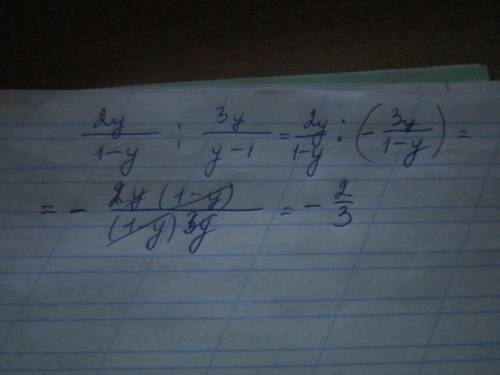 2y/(1-y) : 3y/(y-1) = 2y/(1-y) : (-3y/(1-y)) =
= - 2y(1-y)/((1-y)3y) = - 2/3